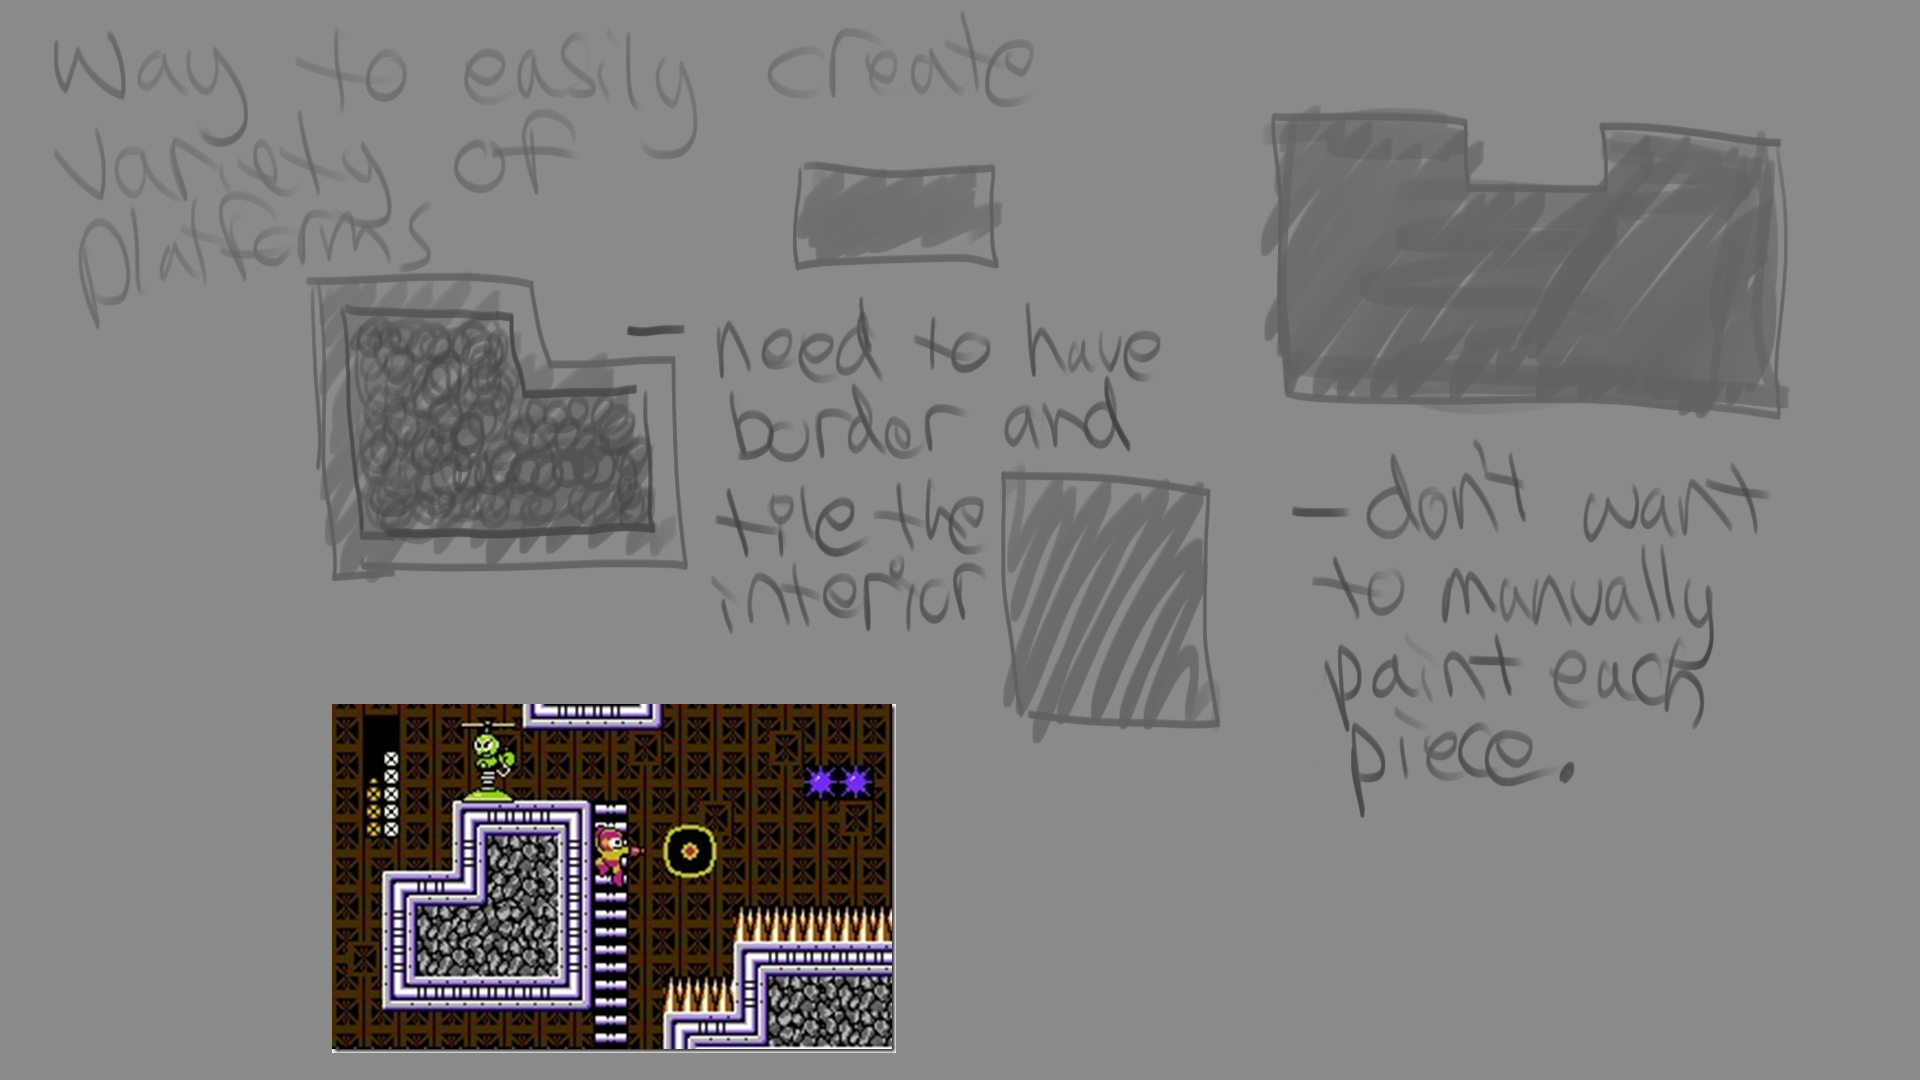 Way to easily create
variety of
platforms
- need to have
border and
tile the
interior
- don't want
to manually
paint each
piece.